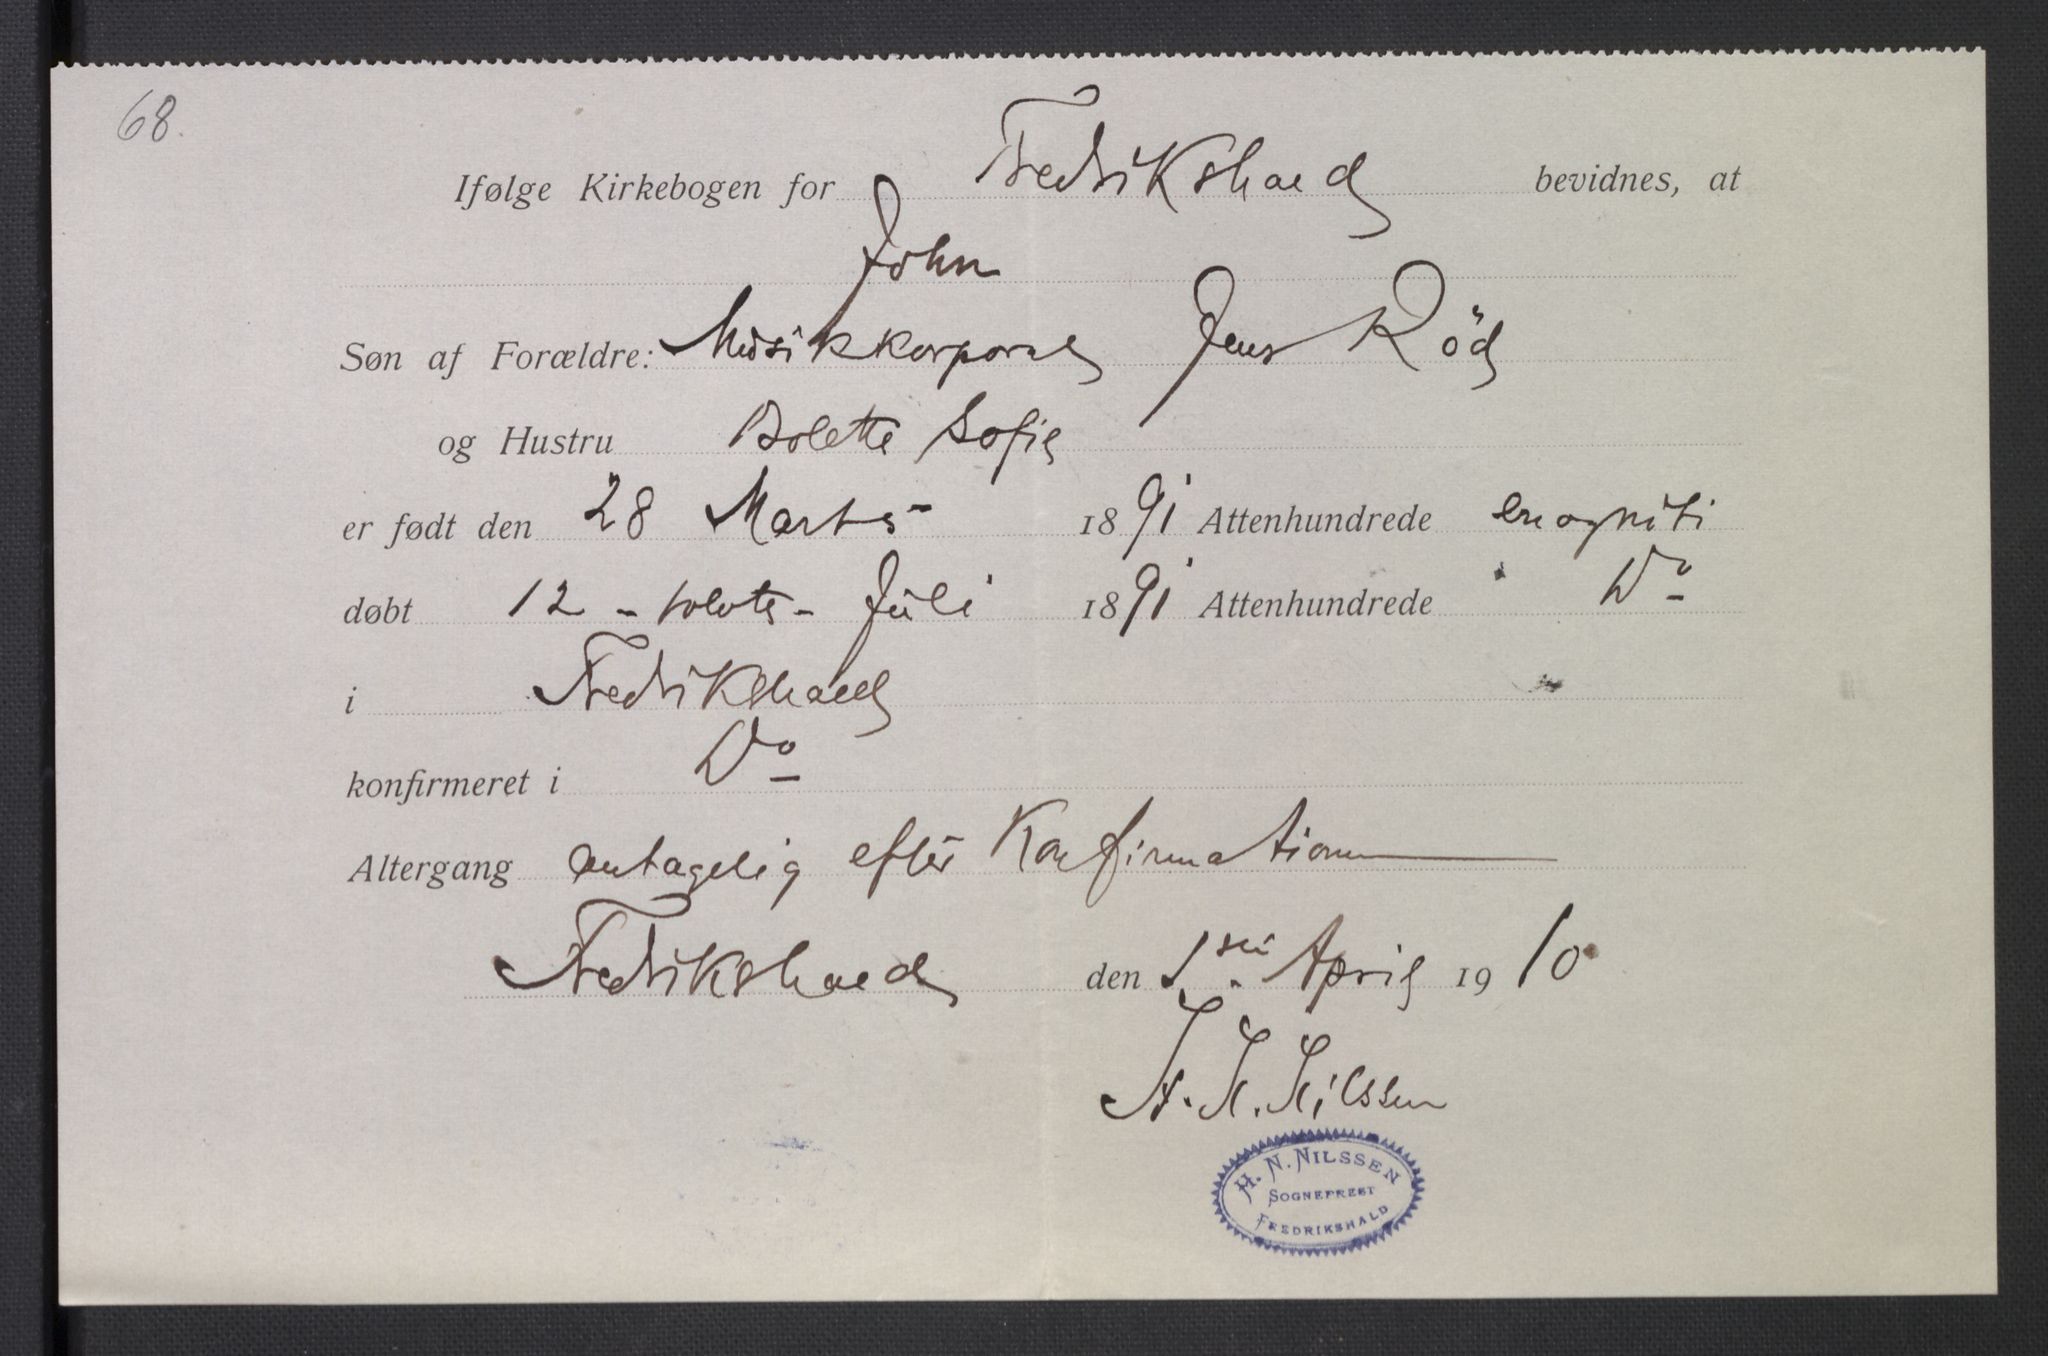 68.
Ifølge Kirkebogen for Fredrikshald bevidnes, at
John
Søn af Forældre: Musikkorporal Jens Röd
og Hustru Bolette Sofie
er født den 28 Marts 1891 Attenhundrede enogniti
døbt 12 - tolvte - Juli 1891 Attenhundrede Do
i Fredrikshald
konfirmeret i Do
Altergang antagelig efter Konfirmationen
Fredrikshald den 1ste April 1910
H. N. Nilssen
H. N. NILSSEN
SOGNEPREST
FREDRIKSHALD